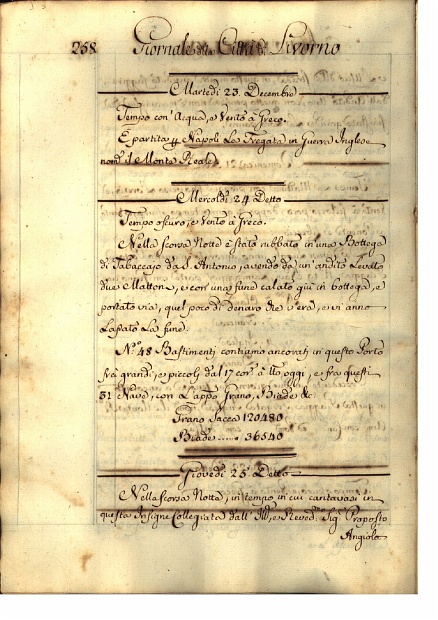 258 Giornale della Città di Livorno
Martedì 23. Decembre
Tempo con' Acqua, e Vento à Greco.
È partita p Napoli La Fregata in Guerra Inglese
nom.ª il Monta Reale
Mercoldì 24 Detto
Tempo oscuro, e Vento à Greco.
Nella scorsa Notte è stato rubbato in una Bottega
di Tabaccajo da S. Antonio, avendo da un' andito Levato
due Mattoni, e con' una fune calato giù in bottega, e
portato via, quel poco di denaro che v'era, e vi anno
Lasciato La fune.
N.º 48 Bastimenti contiamo ancorati in questo Porto
frà grandi, e piccoli dal 17 cor.e à tto oggi, e frà questi
31 Nave, con L'appo Grano, Biade &c
Grano Sacca 120480
Biade ..... 36540
Giovedì 25 Detto
Nella scorsa Notte, in tempo in cui cantavasi in
questa Insigne Collegiata dall' Ill.mo e Reved.mo Sig.r Proposto
Angiolo